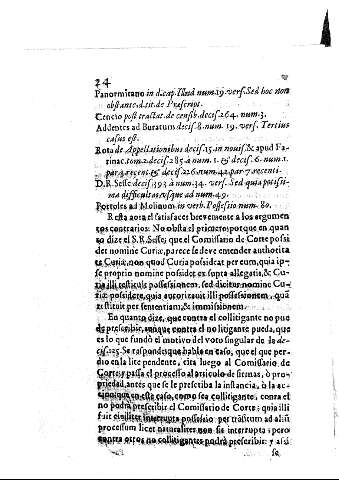 24
Panormitano in d. cap. Illud num. 19. vers. Sed hoc non
obstante. d. tit. de Præscript.
Cencio post tractat. de censib. decis. 264. num. 3.
Addentes ad Buratum decis. 8. num. 19. vers. Tertius
casus est.
Rota de Appellationibus decis. 15. in nouis, & apud Fa-
rinac. tom. 2. decis. 285. à num. 1. & decis. 6. num. 1.
par. 4. recent. & decis. 226. num. 42. par. 7. recenti.
D. R. Sesse decis. 393. à num. 34. vers. Sed quia potissi-
ma difficultas usque ad num. 49.
Portoles ad Molinum in verb. Possessio num. 80.
Resta aora el satisfacer brevemente a los argumen
tos contrarios: No obsta el primero; porque en quan
to dize el S. R. Sesse; que el Comissario de Corte possi
det nomine Curiæ, parece se deve entender authorita
te Curiæ, non quod Curia possideat per eum, quia ip-
se proprio nomine possidet ex supta allegatis, & Cu-
ria illi restituit possessionem, sed dicitur nomine Cu-
riæ possidere, quia autorizauit illi possessionem, quã
restituit per sententiam, & immissionem.
En quanto dize, que contra el collitigante no pue
de prescribir, aunque contra el no litigante pueda, que
es lo que fundò el motivo del voto singular de la de-
cis. 125. Se responde; que habla en caso, que el que per-
dio en la lite pendente, cita luego al Comissario de
Corte, y passa el processo al articulo de firmas, ò pro-
priedad, antes que se le prescriba la instancia, ò la ac-
cion; que en este caso, como sea collitigante, contra el
no podrà prescribir el Comissario de Corte; quia illi
fuit civiliter interrupta possessio per traditum ad aliũ
processum licet naturaliter non sit interrupta; pero
contra otros no collitigantes podrà prescribir: y assi
se